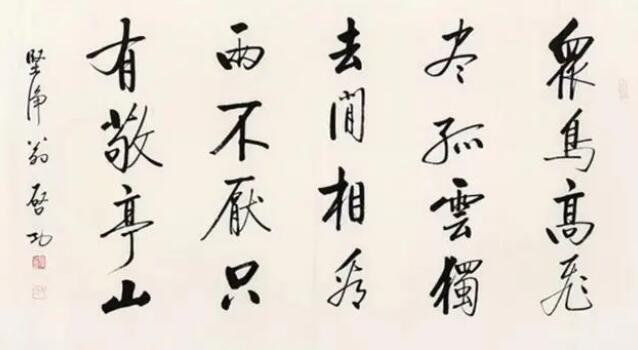 衆鳥高飛
盡孤雲獨
去閒相看
兩不厭只
有敬亭山
堅净翁启功